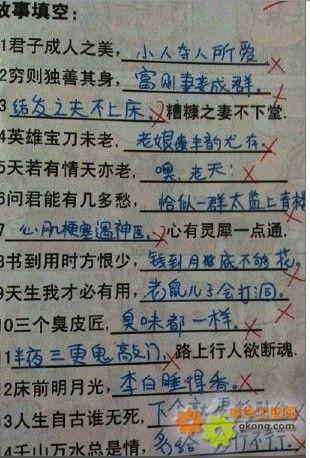 故事填空:
1君子成人之美,小人夺人所爱.
2穷则独善其身,富则妻妾成群.
3结发之夫不上床,糟糠之妻不下堂.
4英雄宝刀未老,老娘丰韵尤存.
5天若有情天亦老,嘿,老天:
6问君能有几多愁,恰似一群太监上青楼
7心肌梗塞遇神医,心有灵犀一点通,
8书到用时方恨少,钱到月底不够花.
9天生我才必有用,老鼠儿子会打洞.
10三个臭皮匠,臭味都一样.
11半夜三更鬼敲门,路上行人欲断魂.
12床前明月光,李白睡得香.
13人生自古谁无死,下个就
14千山万水总是情,多给 行不行.
中华工控网
gkong.com